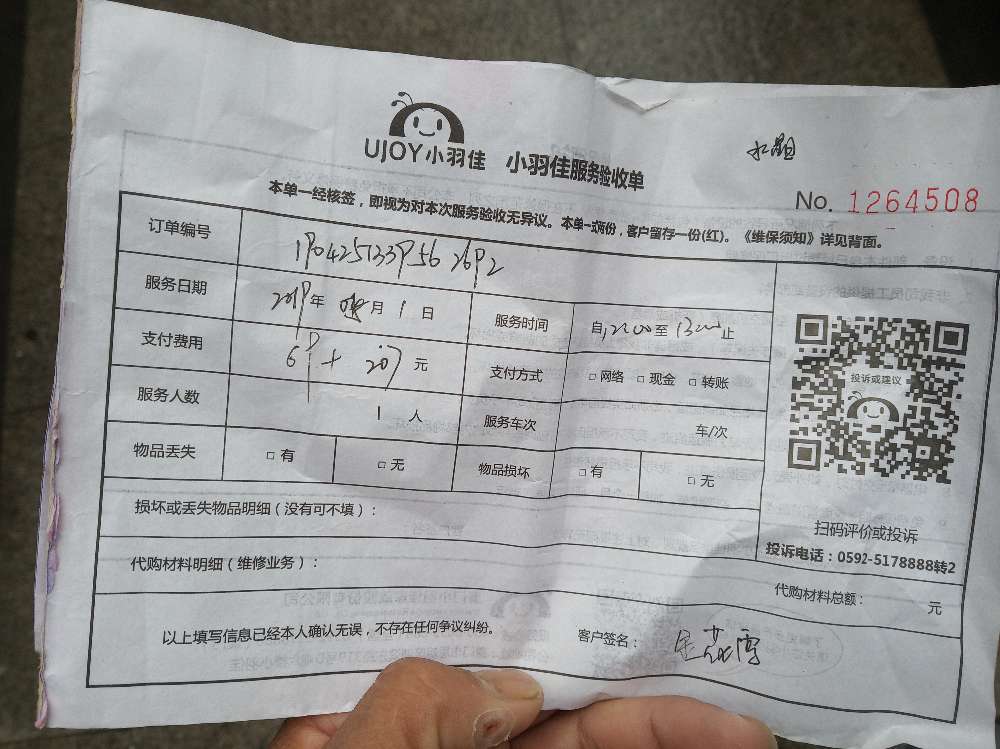 UJOY小羽佳 小羽佳服务验收单
No. 1264508
本单一经核签，即视为对本次服务验收无异议。本单一式两份，客户留存一份(红)。《维保须知》详见背面。
订单编号
服务日期 2019年 月 1 日 服务时间 自12:00至13:00止
支付费用 69+207元 支付方式 □网络 □现金 □转账
服务人数 1 人 服务车次 车/次
物品丢失 □有 □无 物品损坏 □有 □无
投诉或建议
损坏或丢失物品明细（没有可不填）：
扫码评价或投诉
投诉电话：0592-5178888转2
代购材料明细（维修业务）：
代购材料总额： 元
以上填写信息已经本人确认无误，不存在任何争议纠纷。 客户签名：